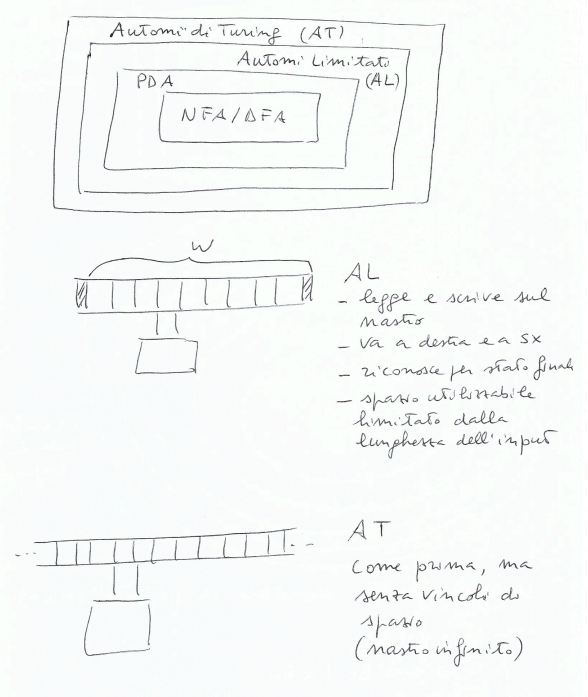 Automi di Turing (AT)
Automi Limitato
(AL)
PDA
NFA/DFA
W
AL
- legge e scrive sul
nastro
- va a destra e a sx
- riconosce per stato finale
- spazio utilizzabile
limitato dalla
lunghezza dell'input
AT
Come prima, ma
senza vincoli di
spazio
(nastro infinito)